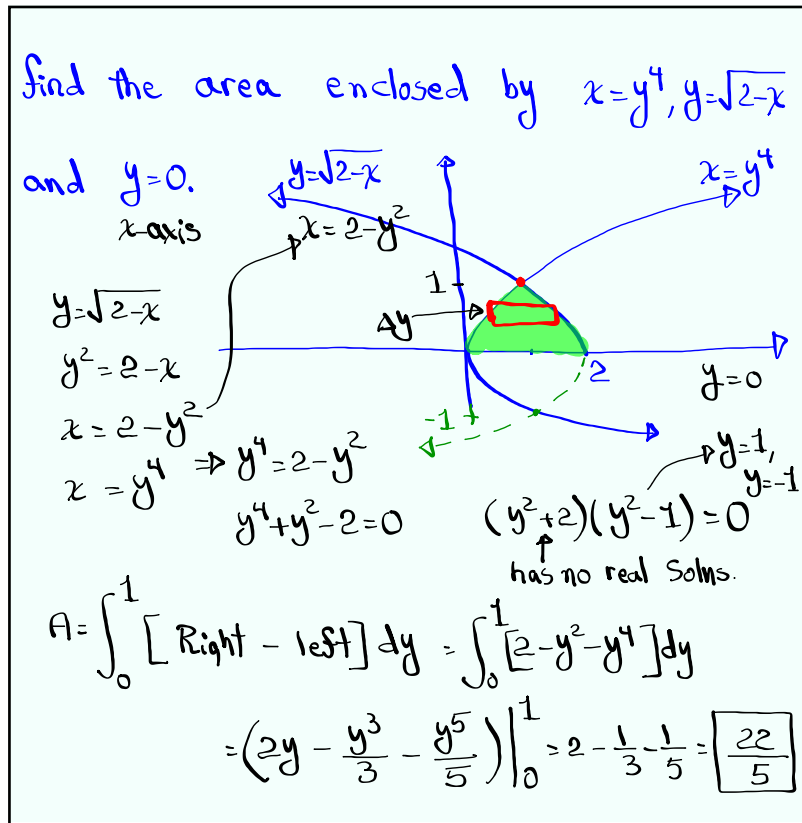 find the area enclosed by x=y⁴, y=√(2-x)
and y=0.
x-axis
y=√(2-x)
x=y⁴
x=2-y²
1
Δy
2
y=0
-1
y=√(2-x)
y²=2-x
x=2-y²
x=y⁴ ⇒ y⁴=2-y²
y⁴+y²-2=0
(y²+2)(y²-1)=0
y=1,
y=-1
has no real Solns.
A=∫₀¹[Right - left]dy = ∫₀¹[2-y²-y⁴]dy
=(2y - y³/3 - y⁵/5)|₀¹ = 2 - 1/3 - 1/5 = 22/5